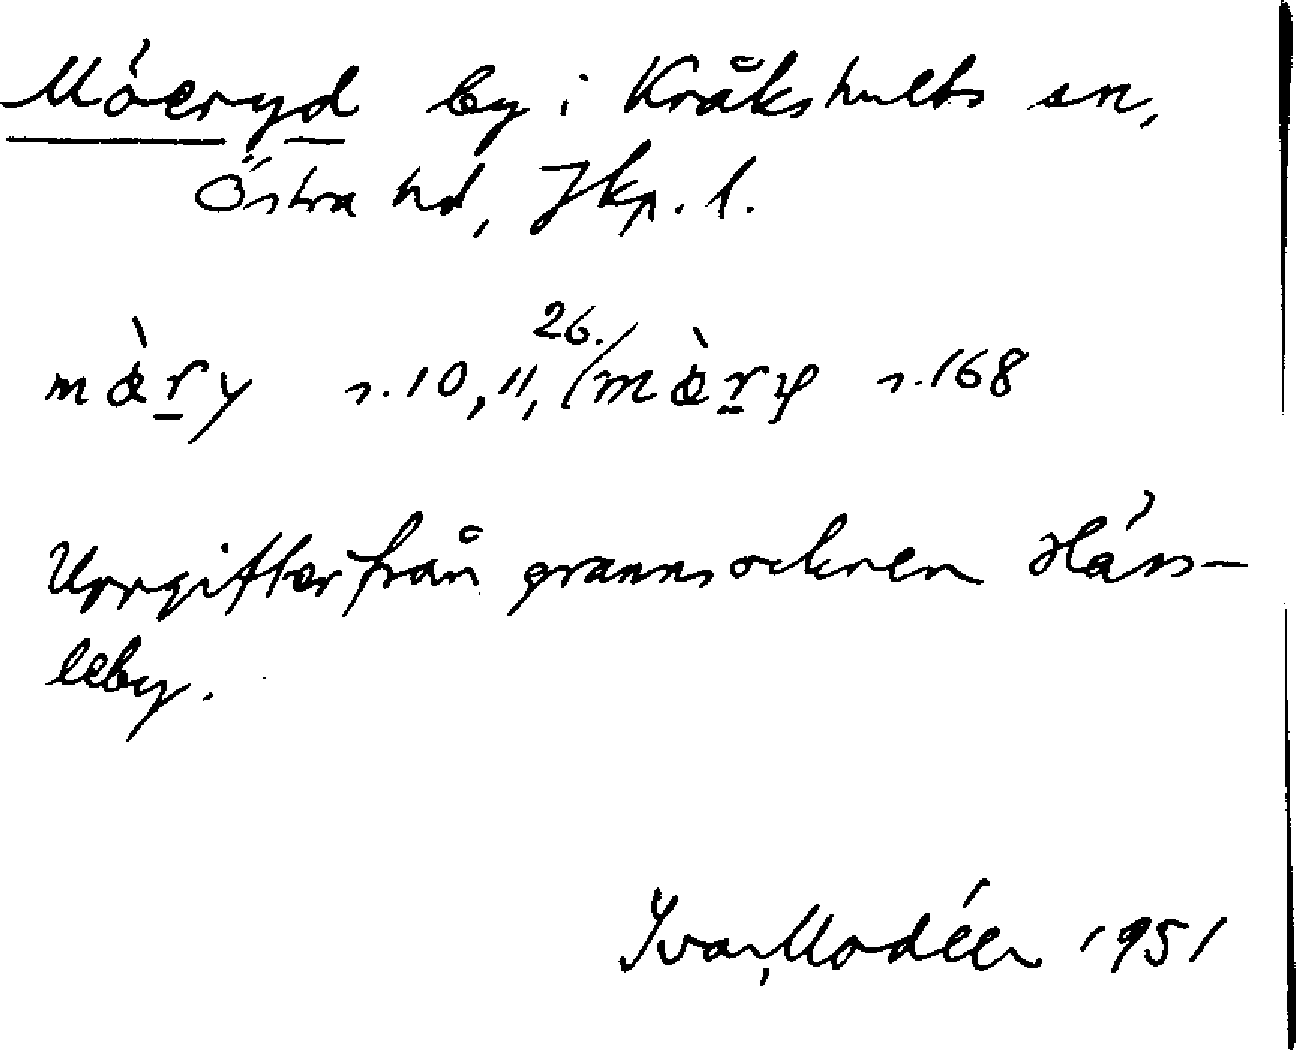 Möeryd by i Kråkshults sn,
Östra hd, Jkp. l.
mø̀ry s. 10, 11, 26./mø̀ry s. 168
Uppgifter från grannsocknen Häss-
leby.
Ivar Modéer 1951